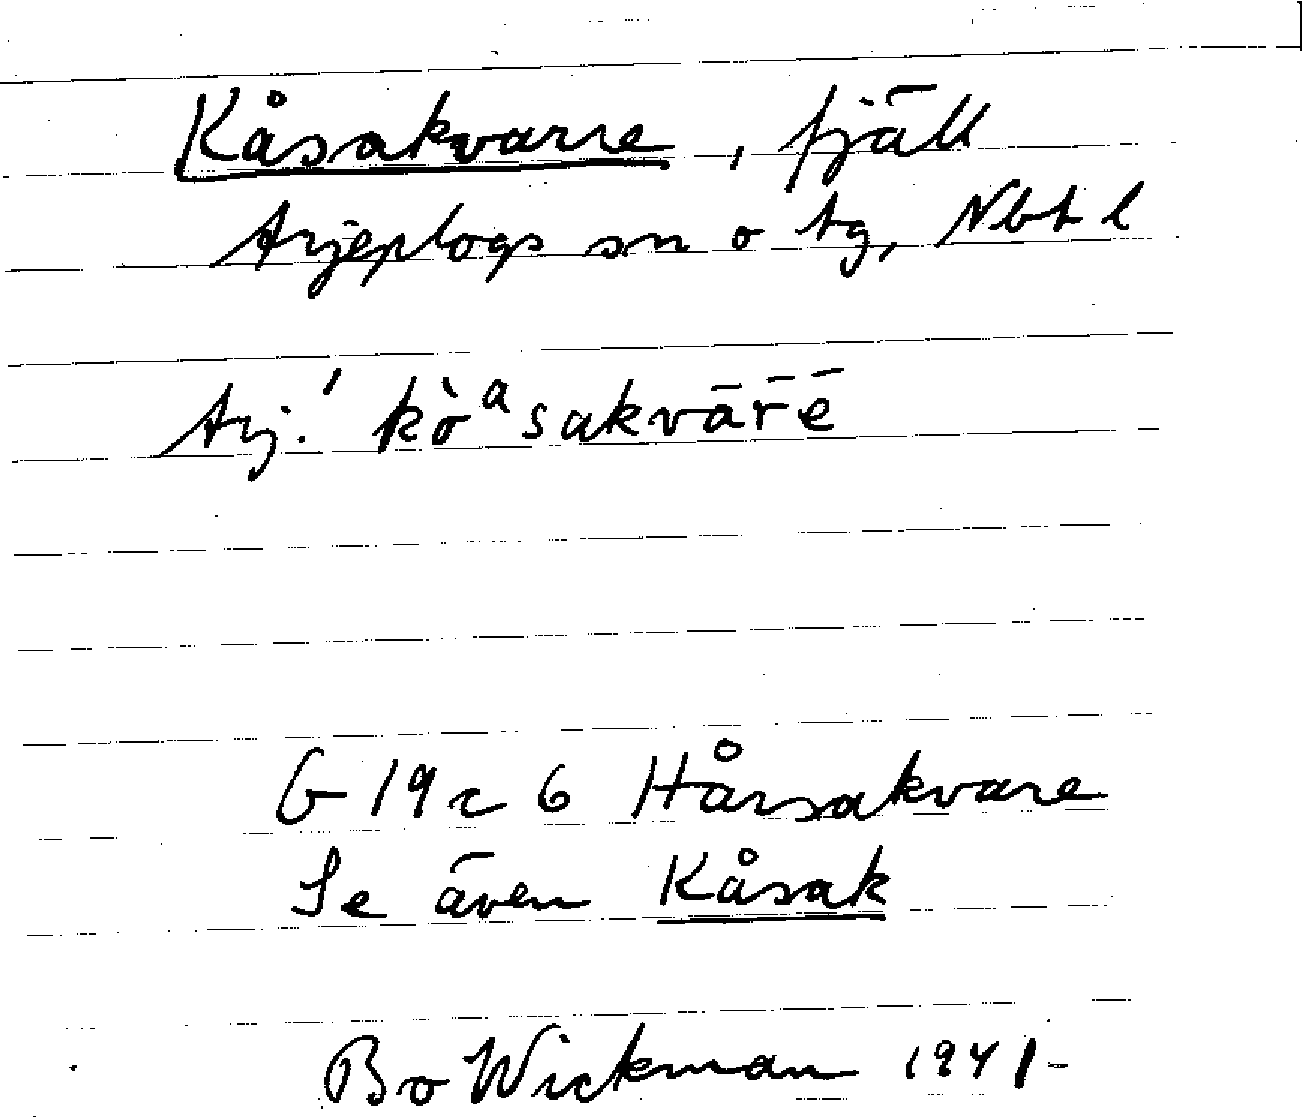 Kåsakvarre, fjäll
Arjeplogs sn o tg, Nbt l
Arj.' kòᵃsakvār̄ē
G 19 c 6 Hårsakvare
Se även Kåsak
Bo Wickman 1941-